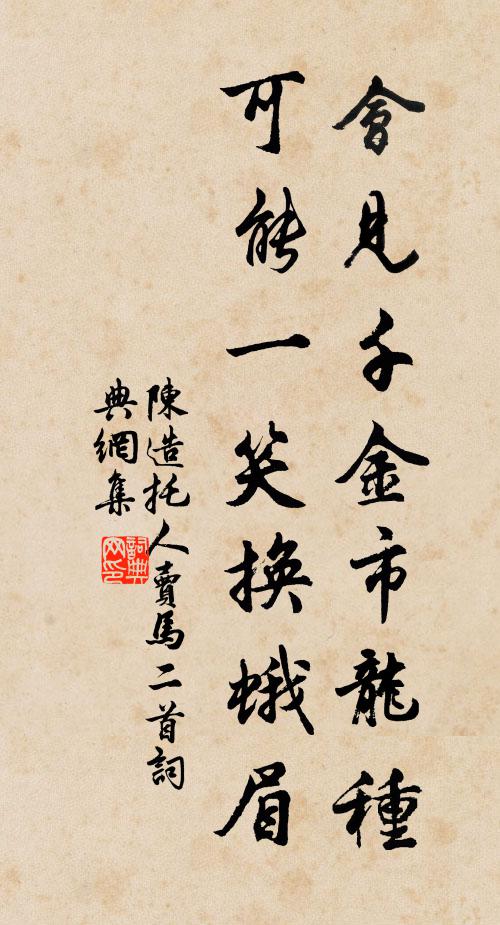 會見千金市龍種
可能一笑換蛾眉
陳造托人賣馬二首詞
典網集
詞典
网印